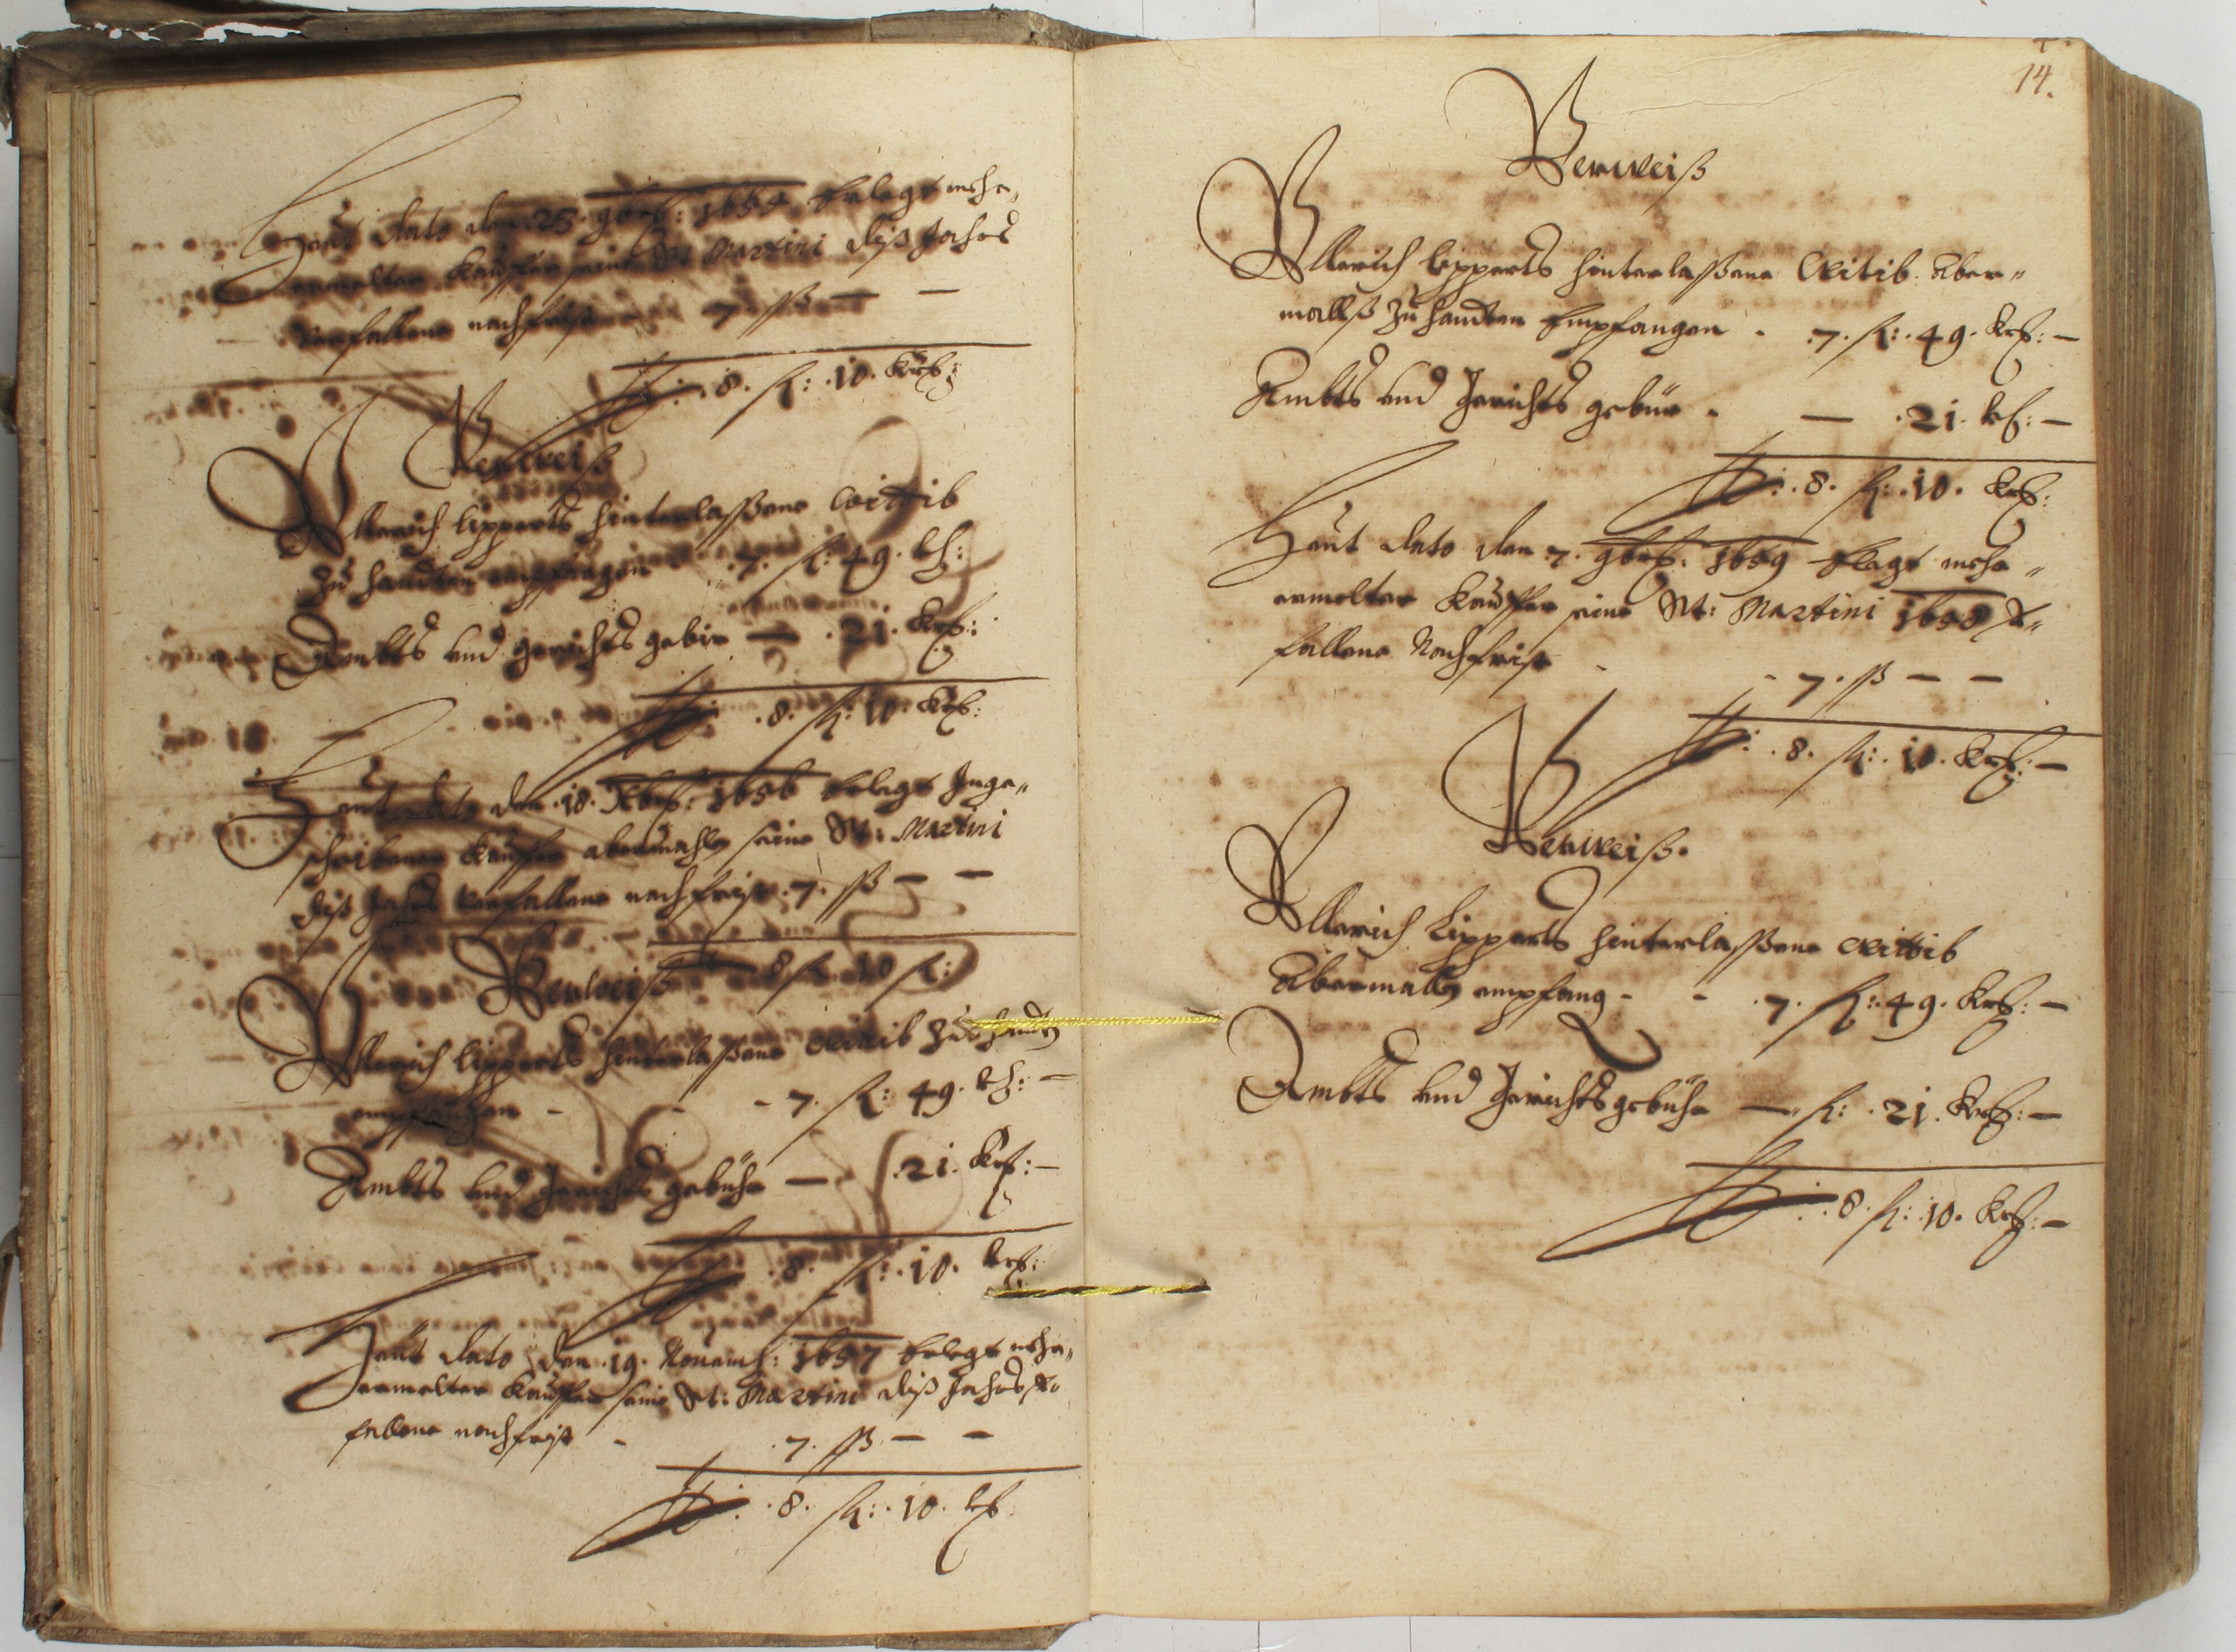 Heüt dato den 23. 9brß: 1654 Erlegt mehr„
ermelter Kauffer seine St Martini diß Jahrs
verfallene nachfrist 7 ß — —
8. fl: 10. Krß:
Verweiß
Ullerich lipperts hinterlaßene Wittib
zu handten empfangen 7. fl: 49. kr:
Ambts und gerichts gebir — 21. Krß:
8. fl: 10. Krß:
Heüt dato den 18. Xbrß: 1656 Erlegt Inge„
schribener Kauffer abermahls seine St: Martini
diß Jahrs verfallene nachfrist 7. ß — —
Verweiß 8 fl 10 kr:
Ullerich lipperts hinterlaßene Wittib zu handt
empfangen - - - 7. fl: 49. kr: —
Ambts und Gerichts gebühr — 21. Krß: —
8. fl: 10. krß:
Heüt dato den 19. Novemb: 1657 Erlegt mehr„
ermelter Kauffer seine St: Martini diß Jahrs ver„
fallene nachfrist - 7. ß — —
8. fl: 10. kr
14.
Verweiß
Ullerich lipperts hinterlaßene Witib Aber„
mallß zu handten Empfangen - 7. fl: 49. Krß: —
Ambts und Gerichts gebür - — 21. kr: —
8. fl: 10. Krß:
Heüt dato den 7. 9brß: 1659 Erlegt mehr„
ermelter Kauffer seine St: Martini 1658 ver„
fallene Nachfrist - - 7. ß — —
8. fl: 10. Krß: —
Verweiß.
Ullerich Lipperts hinterlaßene Wittib
Abermalß empfang - - 7. fl: 49. Krß: —
Ambts und Gerichtsgebühr — fl: 21. Krß: —
8. fl: 10. Krß: —